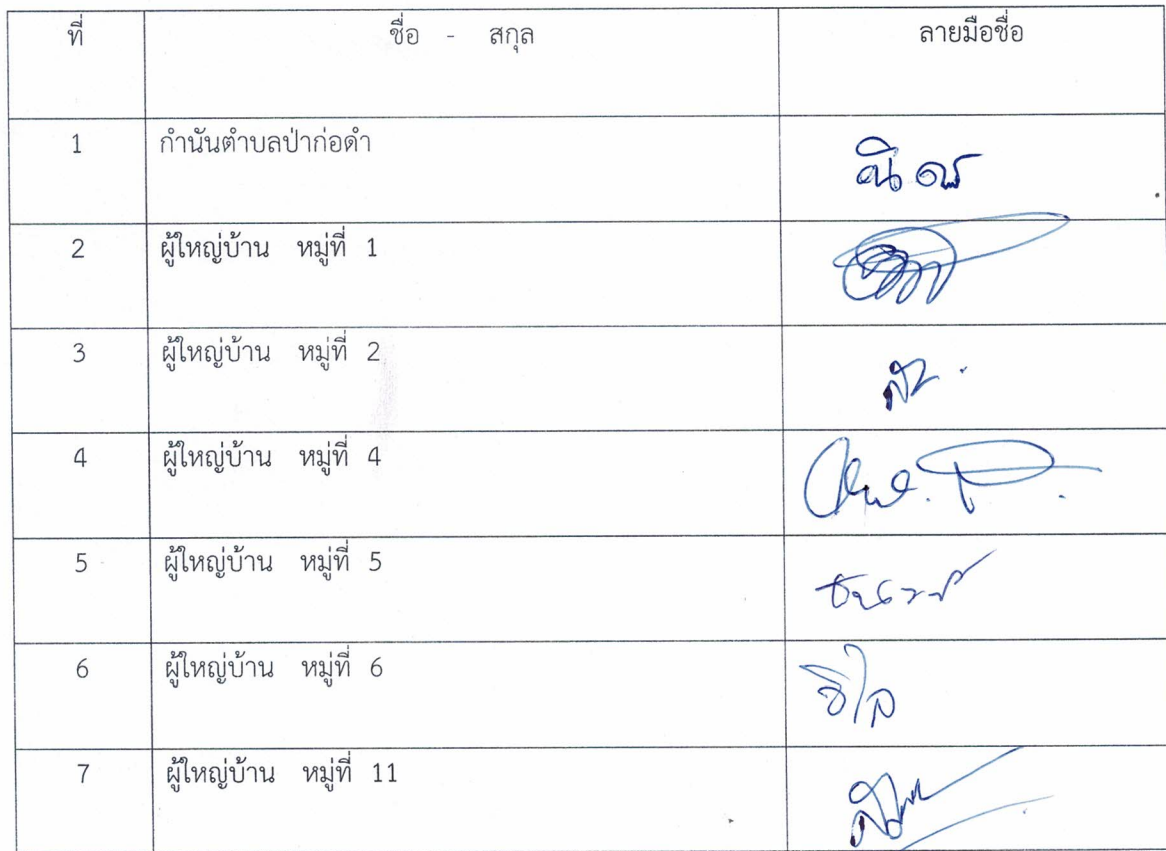 ที่ ชื่อ - สกุล ลายมือชื่อ
1 กำนันตำบลป่าก่อดำ
2 ผู้ใหญ่บ้าน หมู่ที่ 1
3 ผู้ใหญ่บ้าน หมู่ที่ 2
4 ผู้ใหญ่บ้าน หมู่ที่ 4
5 ผู้ใหญ่บ้าน หมู่ที่ 5
6 ผู้ใหญ่บ้าน หมู่ที่ 6
7 ผู้ใหญ่บ้าน หมู่ที่ 11